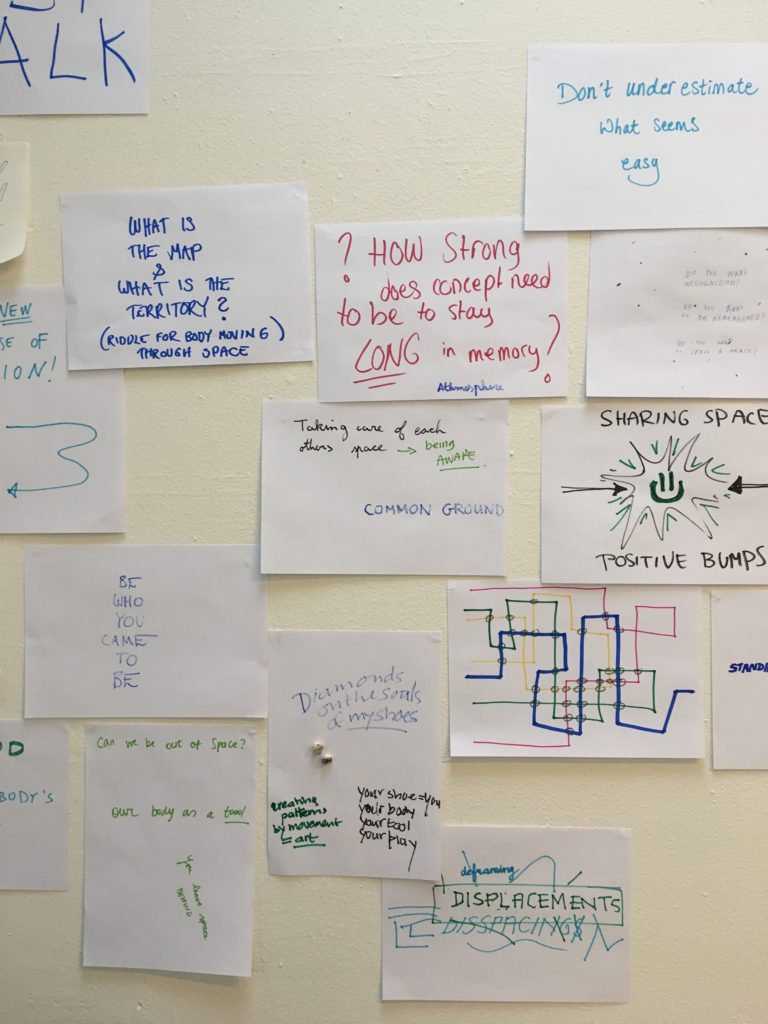 ALK
Don't underestimate
what seems
easy
WHAT IS
THE MAP
&
WHAT IS THE
TERRITORY?
(RIDDLE FOR BODY MOVING)
THROUGH SPACE
? HOW Strong
does concept need
to be to stay
LONG in memory?
Athmosphere
DO YOU WANT
RECOGNISION?
DO YOU WANT
TO BE REMEMBERED?
DO YOU WANT
TO LEAVE A TRACE?
NEW
SE OF
ION!
Taking care of each
others space → being
AWARE
COMMON GROUND
SHARING SPACE
POSITIVE BUMPS
BE
WHO
YOU
CAME
TO
BE
Diamonds
on the souls
of my shoes
creating
patterns
by movement
= art
your shoe = you
your body
your tool
your play
STAND
OD
BODY'S
Can we be out of Space?
our body as a tool
you leave space
BEHIND
deframing
DISPLACEMENTS
DISSPACING